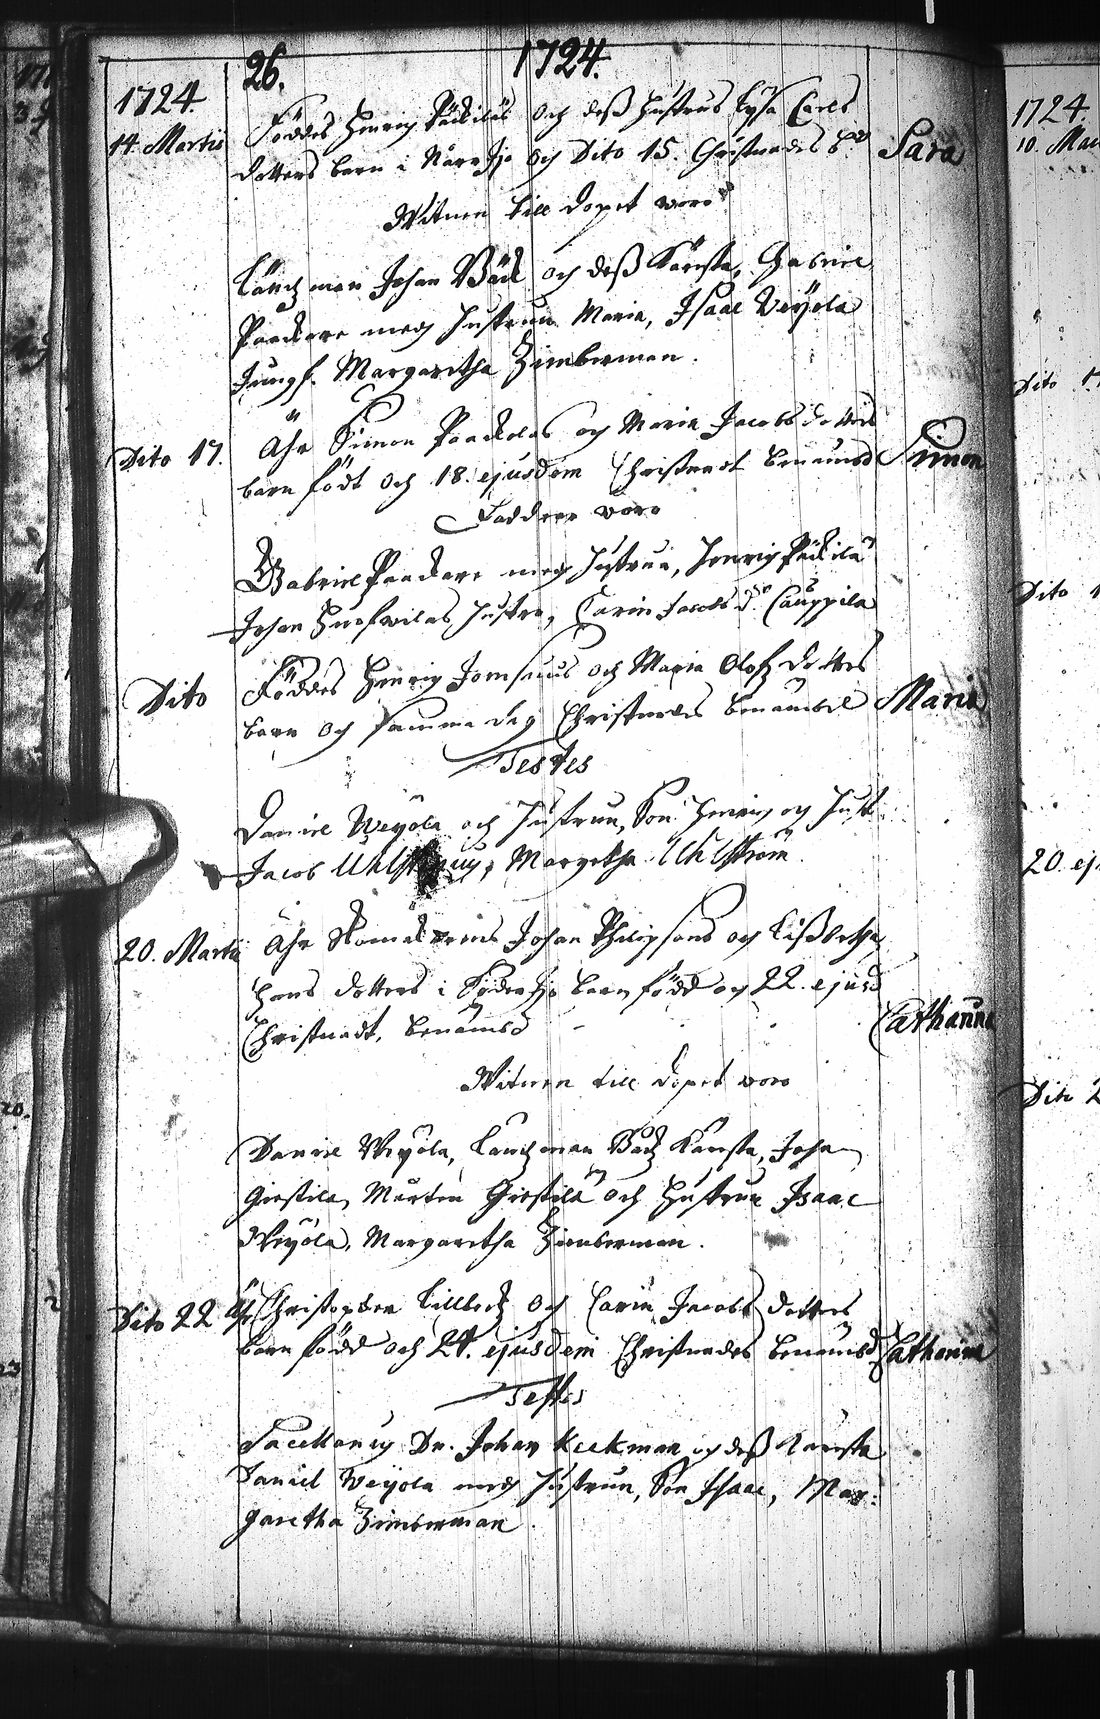 26. 1724.
1724.
14. Martii Föddes Henrig Päckiläs och deß hustrus Lysa Carls
dotters barn i Närr och Dito 15. Christnades Sara
Witnen till dopet woro
Länsman Johan Bäck och deß Käresta, Gabriel
Paackare med hustrun Maria, Isaac Weyola
Jungf. Margaretha Zimberman.
Dito 17. Ähr Simon Paackolas og Maria Jacobs dotters
barn födt och 18. ejusdem Christnadt benämnd Simon
Faddrar woro
Gabriel Paackare med hustrun, Henrig Päckilä
Johan hustru, Carin Jacobs d. Cauppila
Dito Föddes Henrig och Maria Olofz dotters
barn och samma dag Christnades benämbd Maria
Testes
Daniel Weyola och hustrun, Son Henrig og hust
Jacob Margetha Uhlström.
20. Martii Ähr Skomakarens Johan Philipsons og Lißbetha
Hans dotters i Söder barn född og 22. ejusd
Christnadt, benämnd Catharina
Witnen till dopet woro
Daniel Weyola, Länsman Bäck Käresta, Johan
Girstila, Mårten Girstila och Hustrun Isaac
Weyola, Margaretha Zimberman.
Dito 22 Ähr Christopher Lillbeck och Carin Jacobs dotters
barn född och 24. ejusdem Christnades benämnd Catharina
Testes
Sacellanus Dn. Johan Keekman og deß Käresta
Daniel Weyola med hustrun, Son Isaac, Mar:
garetha Zimberman.
1724.
10. Mar
Dito 1
Dito 1
20. ej
Dito 2